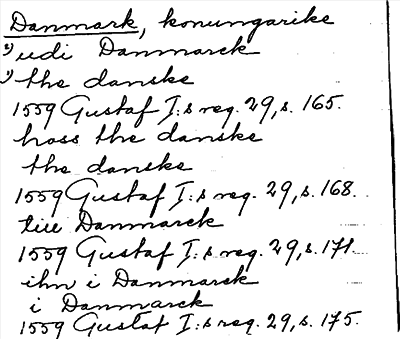 Danmark, konungarike
1) udi Danmarck
1) the danske
1559 Gustaf I:s reg. 29, s. 165.
hoss the danske
the danske
1559 Gustaf I:s reg. 29, s. 168.
till Danmarck
1559 Gustaf I:s reg. 29, s. 171.
ihn i Danmarck
i Danmarck
1559 Gustaf I:s reg. 29, s. 175.